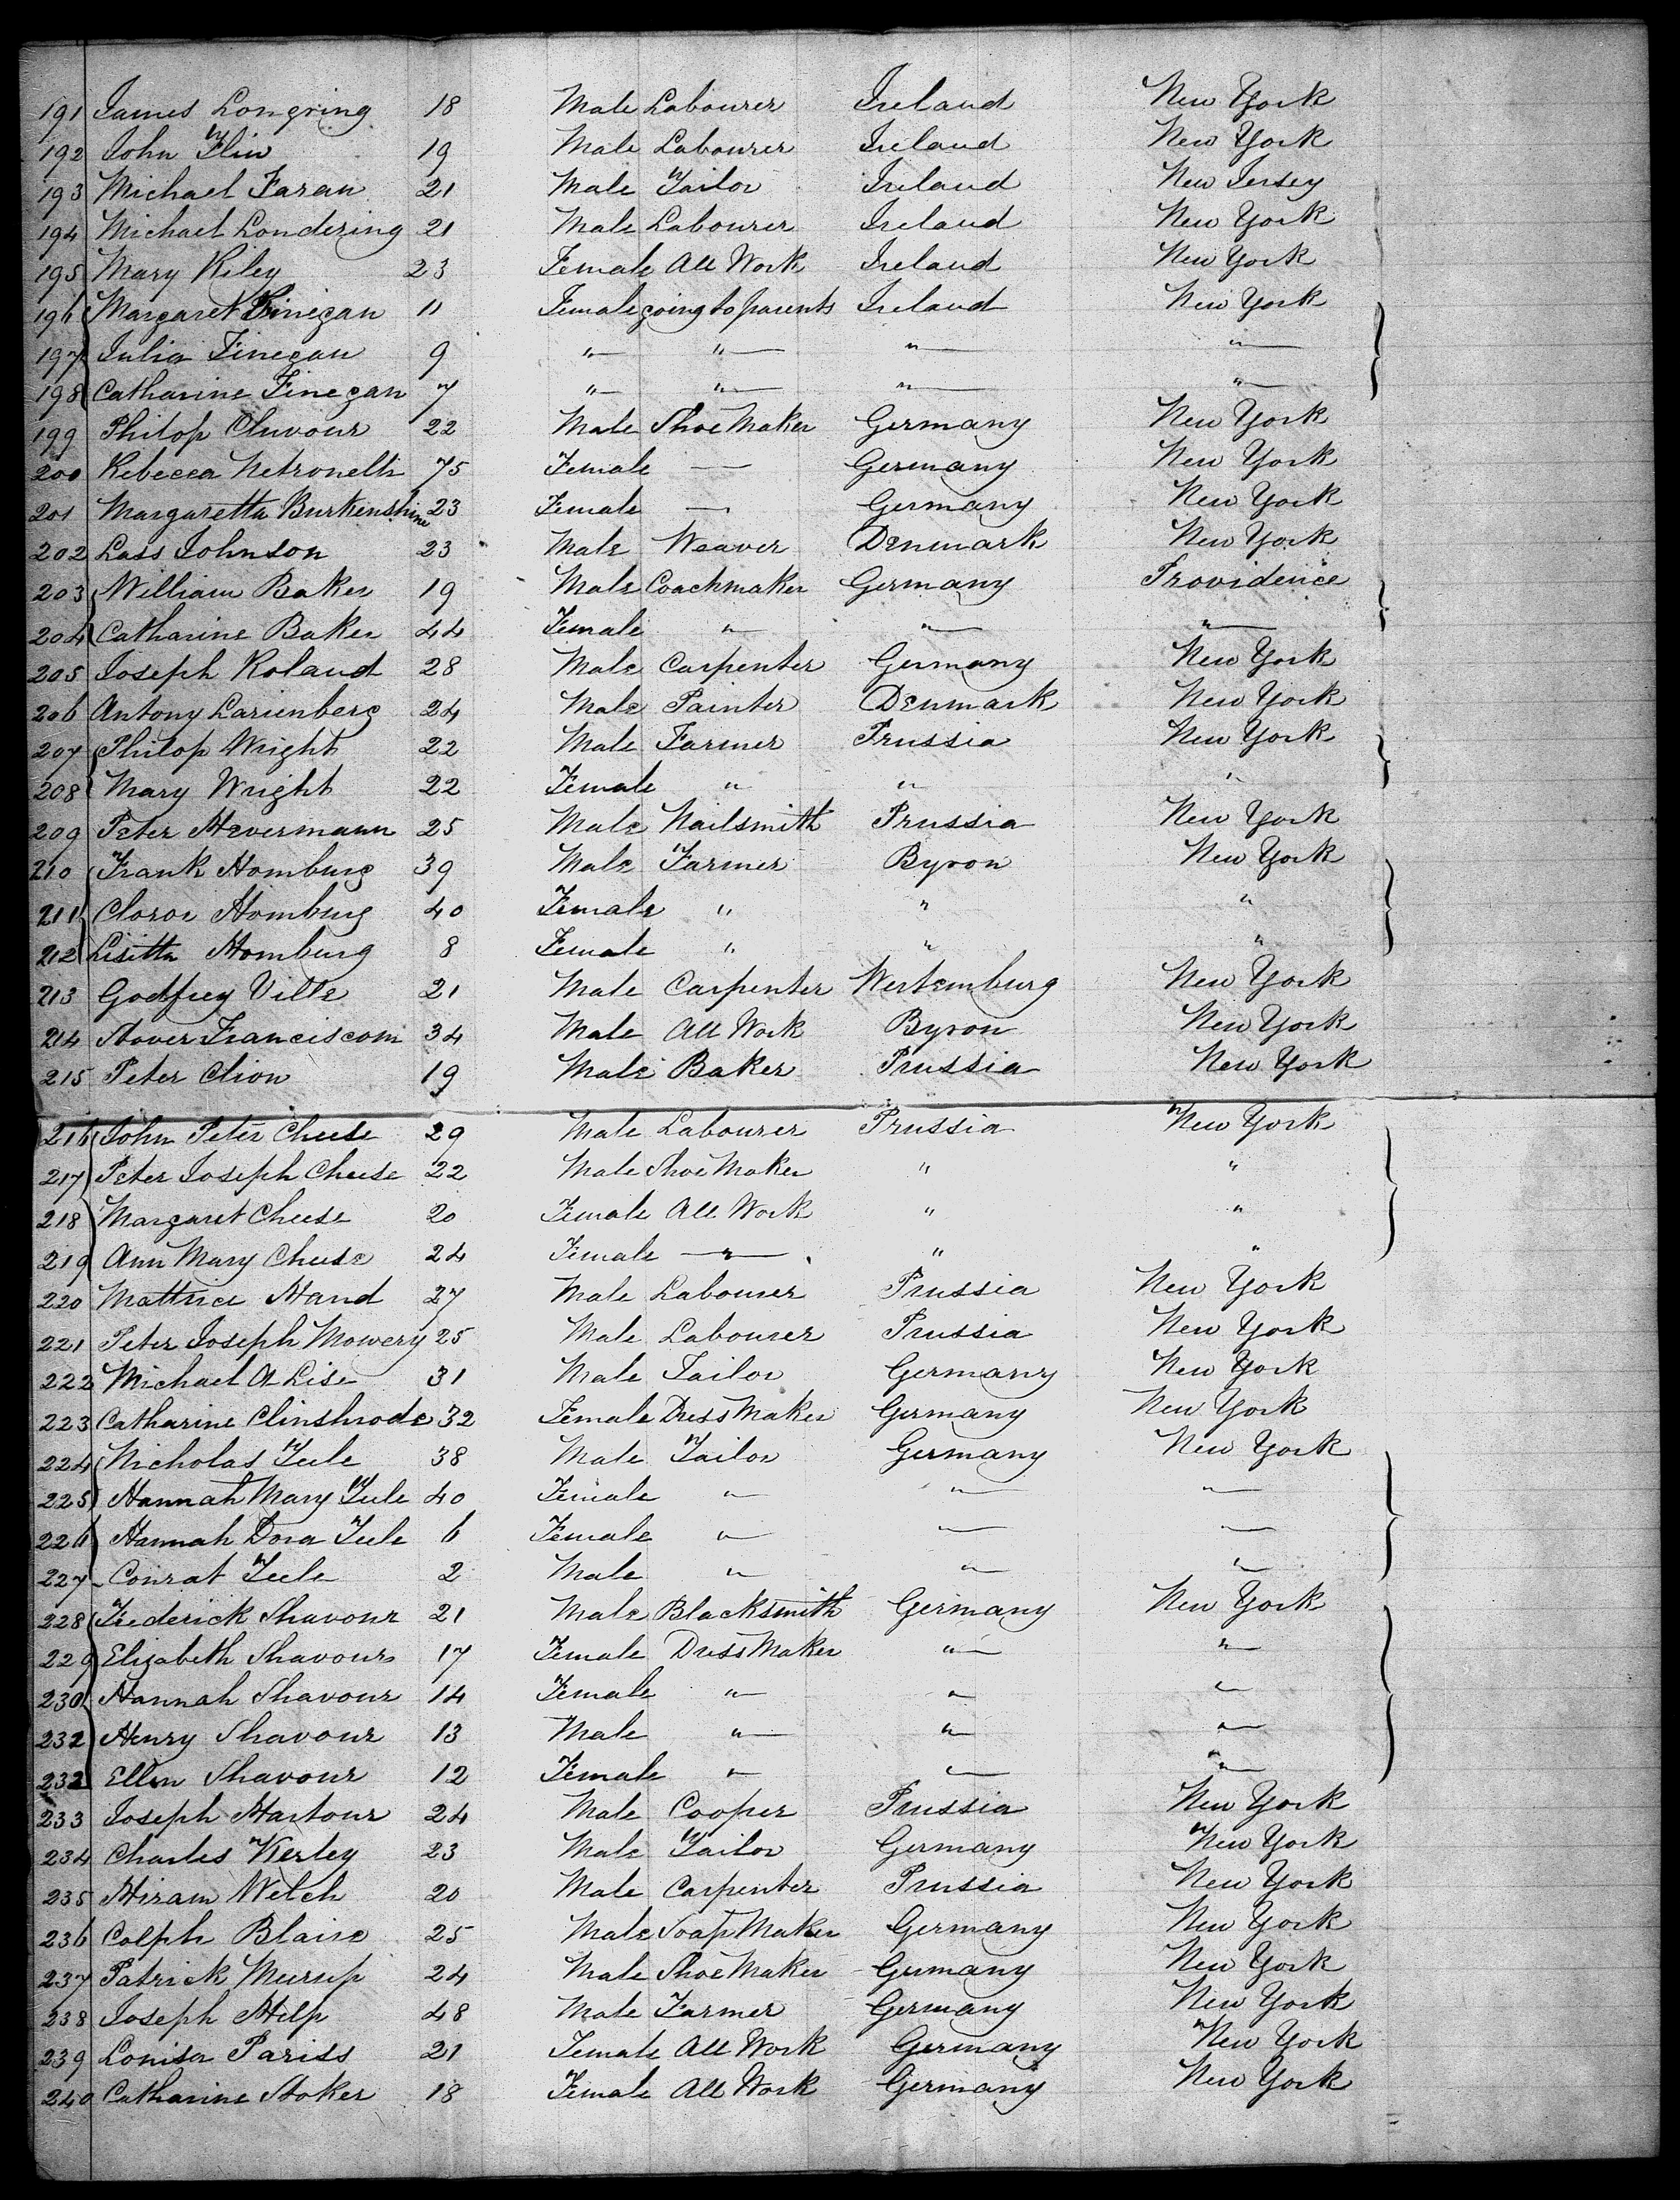 191 James Longring 18 Male Labourer Ireland New York
192 John Flin 19 Male Labourer Ireland New York
193 Michael Faran 21 Male Tailor Ireland New Jersey
194 Michael Londering 21 Male Labourer Ireland New York
195 Mary Riley 23 Female All Work Ireland New York
196 Margaret Finegan 11 Female going to parents Ireland New York
197 Julia Finegan 9 " " " "
198 Catharine Finegan 7 " " " "
199 Philop Cluvour 22 Male Shoe Maker Germany New York
200 Rebecca Netronelli 75 Female — Germany New York
201 Margaretta Burkenshine 23 Female — Germany New York
202 Lass Johnson 23 Male Weaver Denmark New York
203 William Baker 19 Male Coachmaker Germany Providence
204 Catharine Baker 44 Female " " "
205 Joseph Roland 28 Male Carpenter Germany New York
206 Antony Larienberg 24 Male Painter Denmark New York
207 Philop Wright 22 Male Farmer Prussia New York
208 Mary Wright 22 Female " " "
209 Peter Hevermann 25 Male Nailsmith Prussia New York
210 Frank Homburg 39 Male Farmer Byron New York
211 Cloror Homburg 40 Female " " "
212 Lisitta Homburg 8 Female " " "
213 Godfrey Ville 21 Male Carpenter Wertemburg New York
214 Stover Franciscom 34 Male All Work Byron New York
215 Peter Clion 19 Male Baker Prussia New York
216 John Peter Cheese 29 Male Labourer Prussia New York
217 Peter Joseph Cheese 22 Male Shoe Maker " "
218 Margaret Cheese 20 Female All Work " "
219 Ann Mary Cheese 24 Female " " "
220 Mattrice Hand 27 Male Labourer Prussia New York
221 Peter Joseph Mowery 25 Male Labourer Prussia New York
222 Michael A Lise 31 Male Tailor Germany New York
223 Catharine Clinshrode 32 Female Dress Maker Germany New York
224 Nicholas Tule 38 Male Tailor Germany New York
225 Hannah Mary Tule 40 Female " " "
226 Hannah Dora Tule 6 Female " " "
227 Conrat Tule 2 Male " " "
228 Frederick Shavour 21 Male Blacksmith Germany New York
229 Elizabeth Shavour 17 Female Dress Maker " "
230 Hannah Shavour 14 Female " " "
232 Henry Shavour 13 Male " " "
232 Ellen Shavour 12 Female " " "
233 Joseph Hartour 24 Male Cooper Prussia New York
234 Charles Kerley 23 Male Tailor Germany New York
235 Hiram Welch 20 Male Carpenter Prussia New York
236 Colph Blaise 25 Male Soap Maker Germany New York
237 Patrick Mursip 24 Male Shoe Maker Germany New York
238 Joseph Help 48 Male Farmer Germany New York
239 Louisa Pariss 21 Female All Work Germany New York
240 Catharine Stoker 18 Female All Work Germany New York